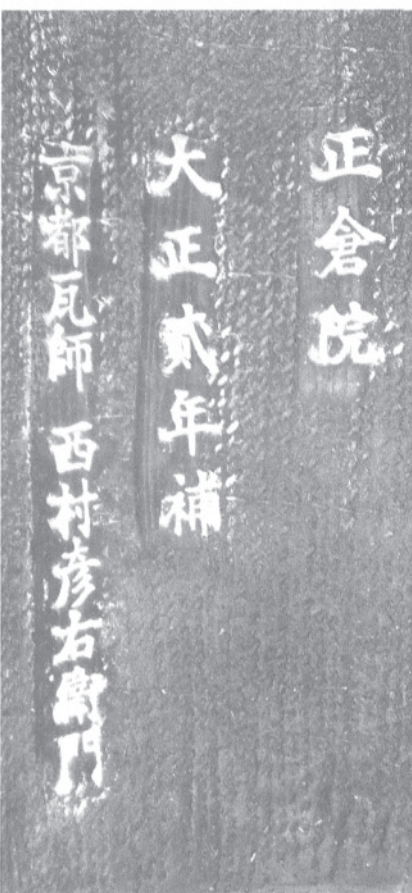 正倉院
大正貳年補
京都瓦師 西村彦右衛門